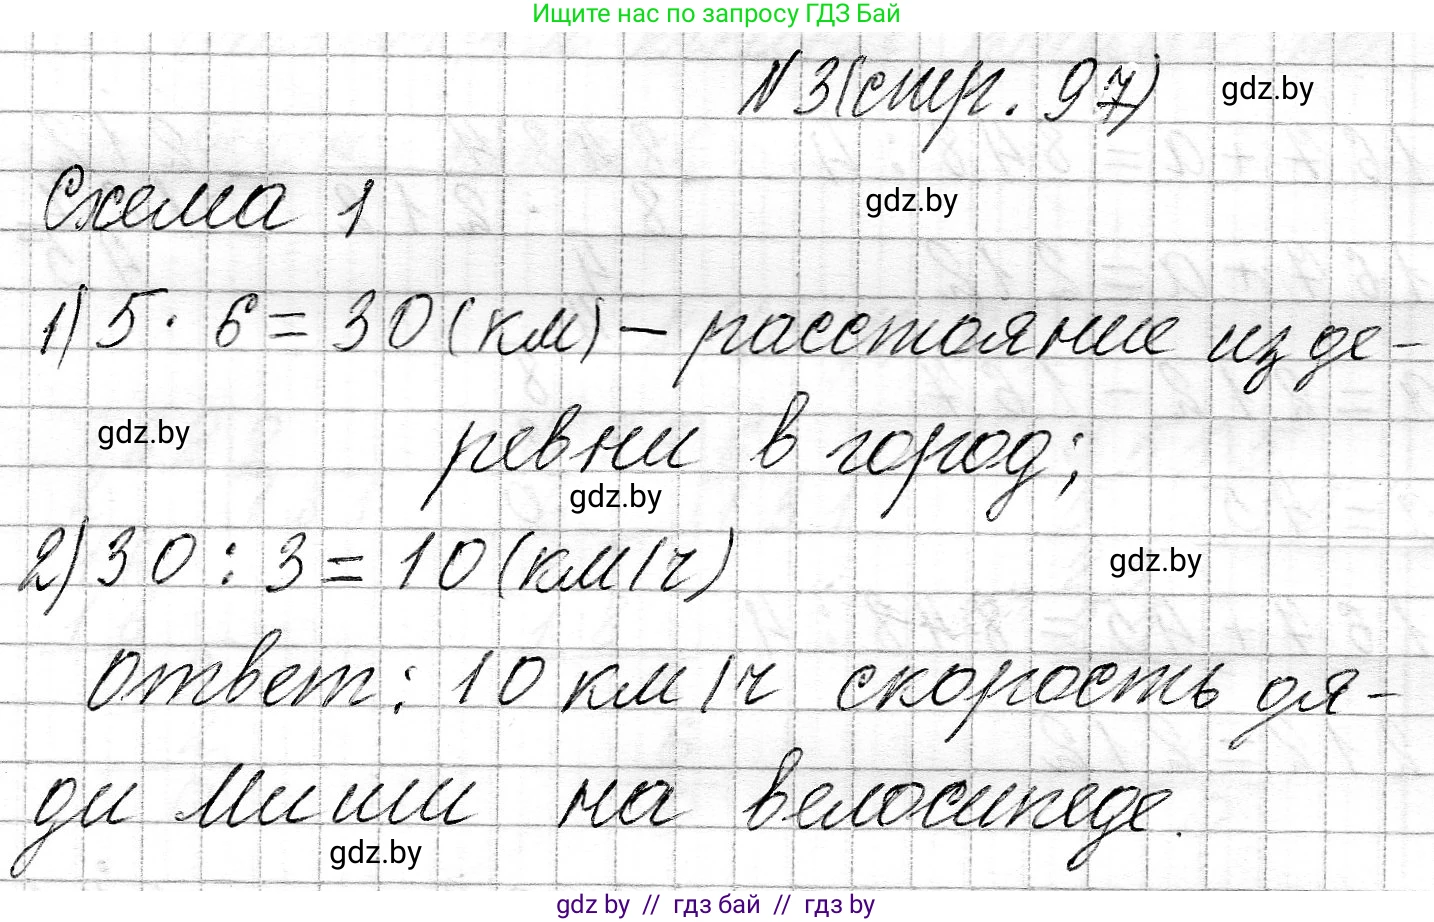 Ищите нас по запросу ГДЗ Бай
N 3 (стр. 97)
gdz.by
Схема 1
gdz.by
1) 5 · 6 = 30 (км) – расстояние из де-
gdz.by
ревни в город;
gdz.by
2) 30 : 3 = 10 (км/ч)
gdz.by
ответ: 10 км/ч скорость дя-
ди Миши на велосипеде.
gdz.by
gdz by // гдз бай // гдз by